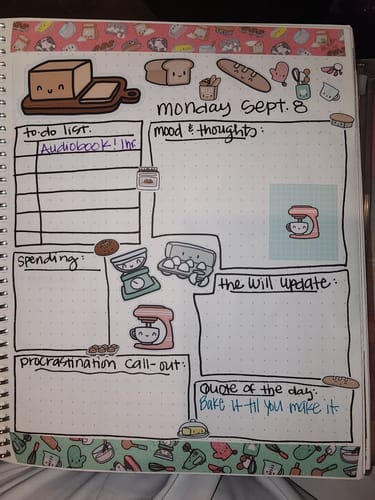 monday Sept. 8
to-do list.
Audiobook! 1hr
mood & thoughts:
spending:
the Will update:
procrastination call-out:
Quote of the day:
Bake it til you make it